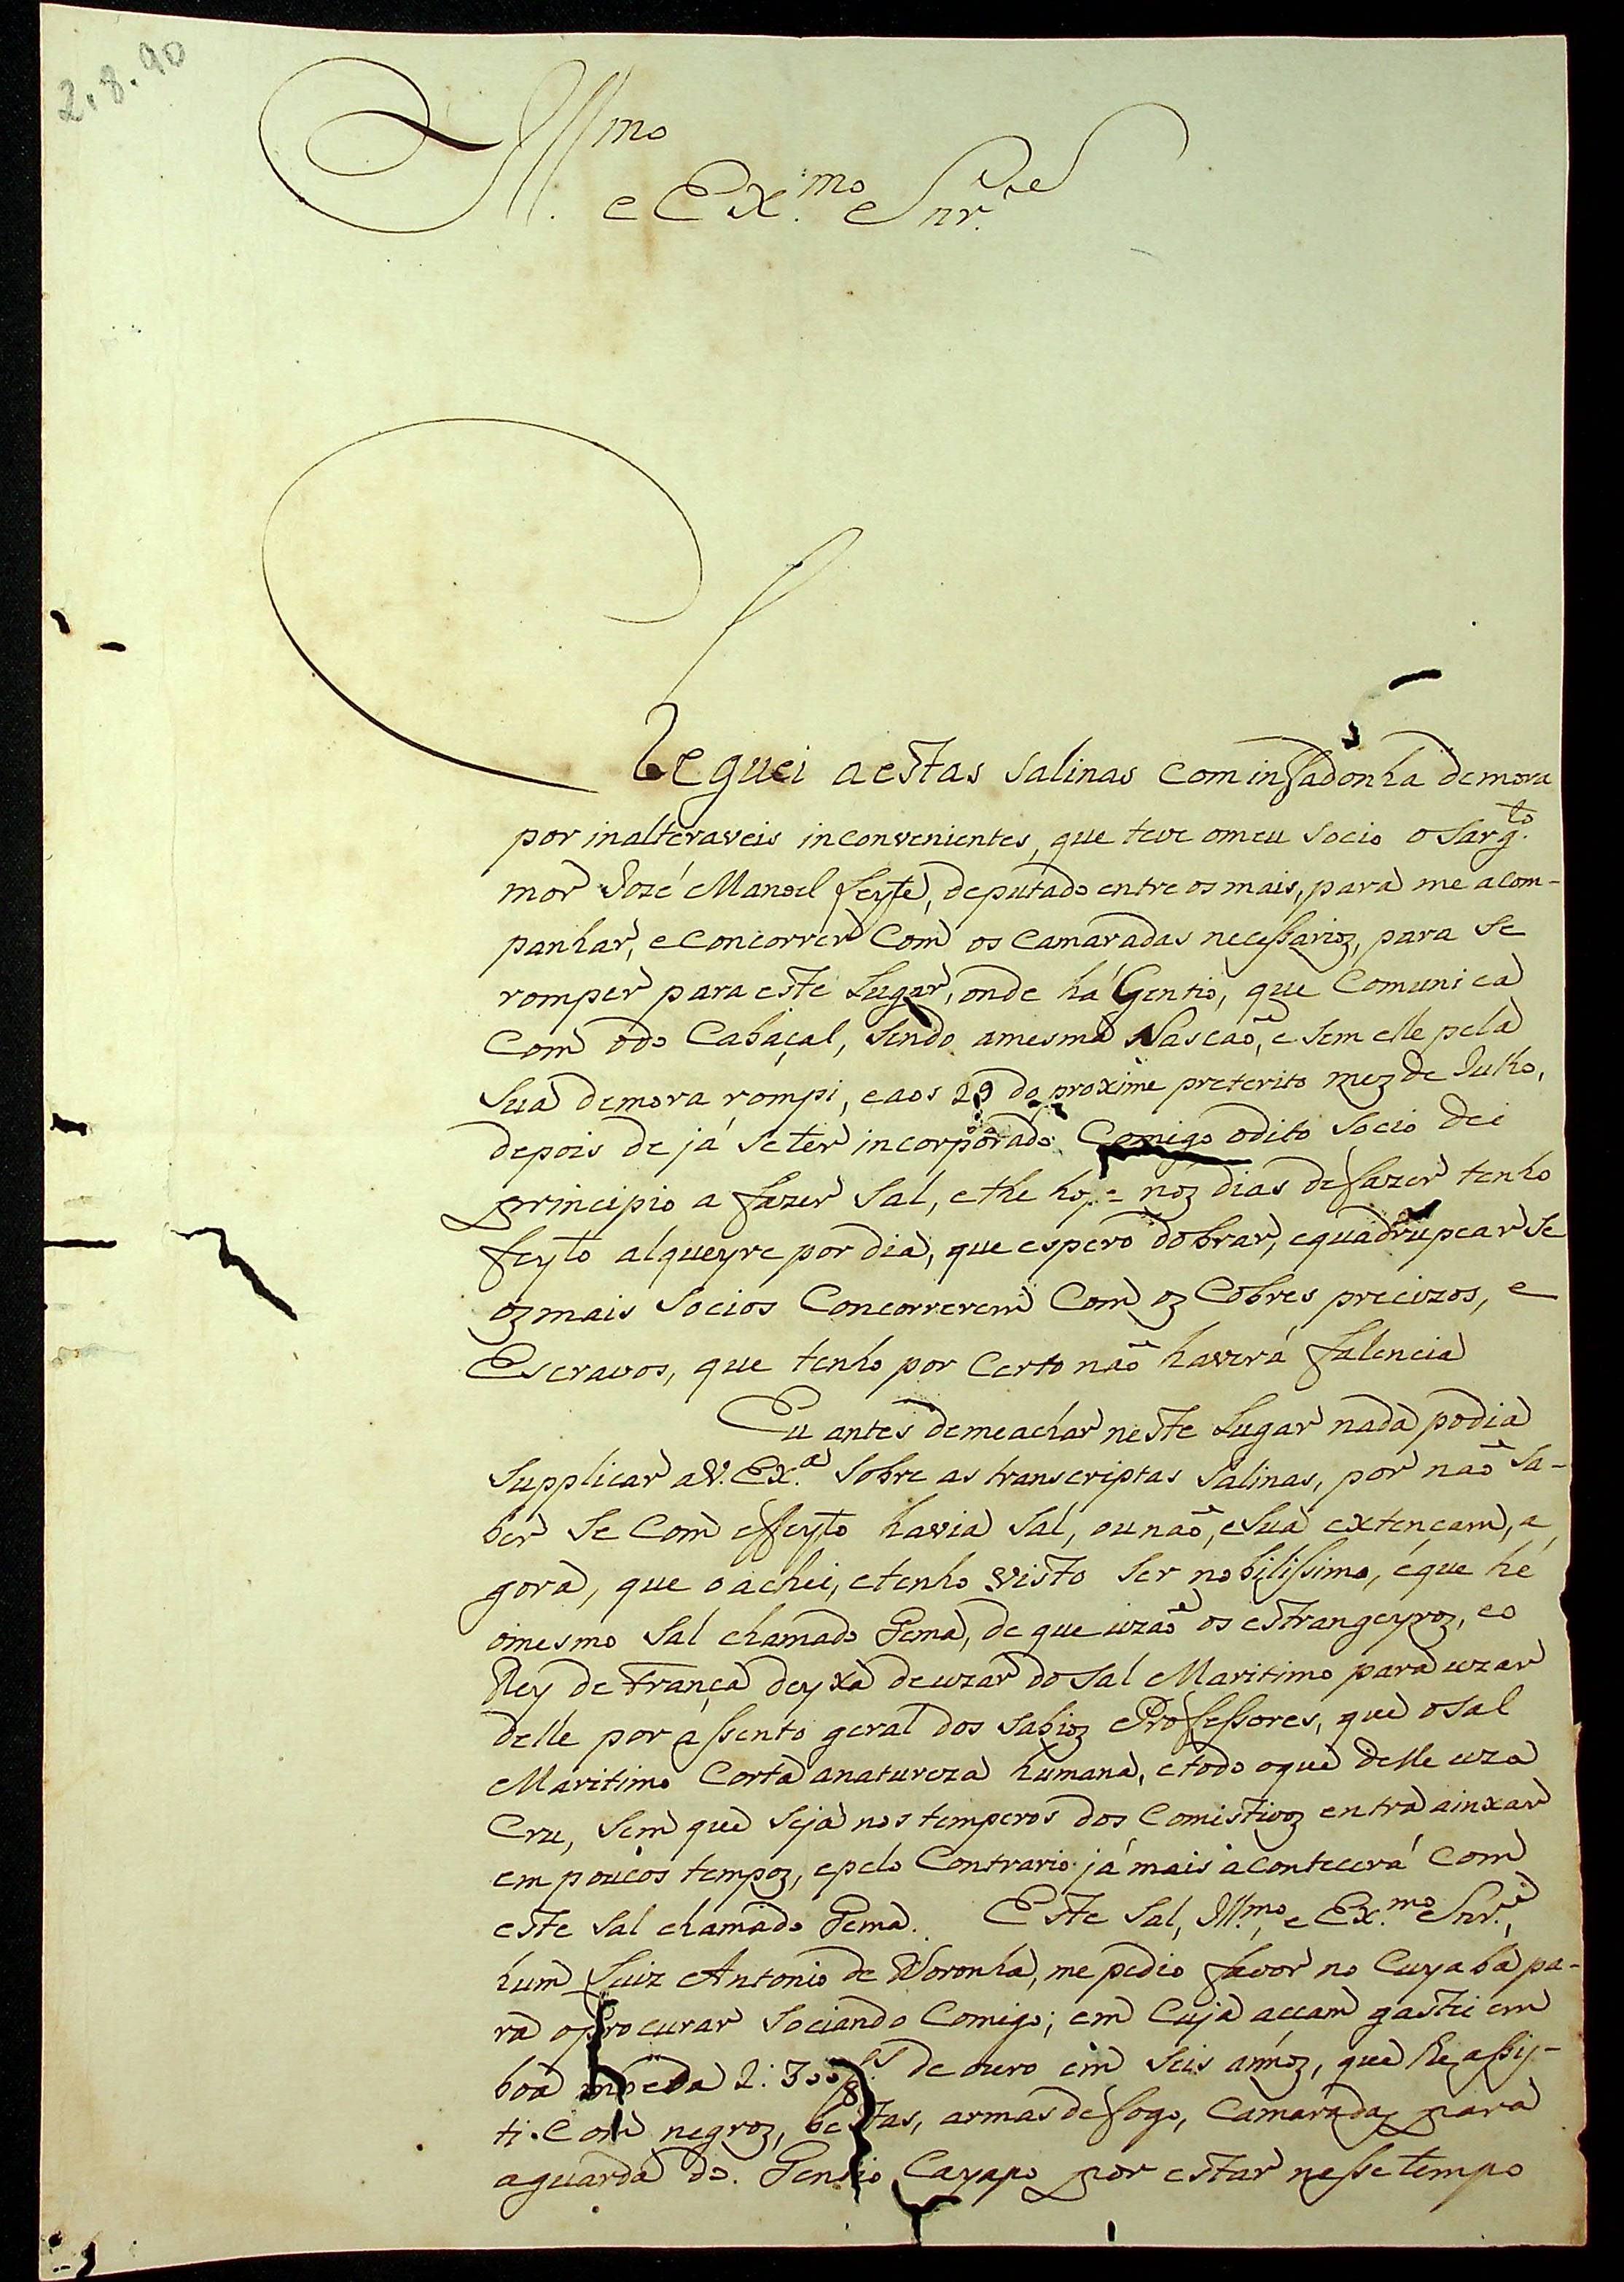 2.8.90
Ill.mo
e Ex.mo Snr.
Cheguei a estas salinas com infadonha demora
por inalteraveis inconvenientes, que teve o meu socio o Sarg.to
mor Jozé Manoel Feyte, deputado entre os mais, para me acom-
panhar, e concorrer com os camaradas necessarioz, para se
romper para este Lugar, onde há Gentio, que comunica
com o do Cabaçal, sendo a mesma Nascaõ, e sem elle pela
sua demora rompi, e aos 29 do proxime preterito mez de Julho,
depois de já se ter incorporado Comigo o dito socio dei
principio a fazer sal, e the hoje noz dias de fazer tenho
feyto alqueyre por dia, que espero dobrar, e quadrupear se
oz mais socios concorrerem com oz cobres precizos, e
Escravos, que tenho por certo naõ haverá falencia
Eu antes de me achar neste Lugar nada podia
supplicar a V. Ex.a sobre as transcriptas salinas, por naõ sa-
ber se com effeyto havia sal, ou naõ, e sua extençam, a
gora, que o achei, e tenho visto ser nobilissimo, é que hé
o mesmo sal chamado Gema, de que uzaõ os estrangeyroz, e o
Rey de França deyxa de uzar do sal Maritimo para uzar
delle por assento geral dos sabioz e Professores, que o sal
Maritimo corta a natureza humana, e todo o que delle uza
cru, sem que seja nos temperos dos comistivoz entra a inxar
em poucos tempoz, e pelo contrario já mais acontecerá com
este sal chamado Gema. Este sal, Ill.mo, e Ex.mo Snr.,
hum Luiz Antonio de Noronha, me pedio favor no Cuyabá pa-
ra o procurar sociando comigo; em cuja accam gastei em
boa moeda 2:300/8.as de ouro em seis annoz, que lhe assis-
ti com negroz, bestas, armas de fogo, camaradaz para
a guarda do Gentio Cayapo por estar nesse tempo